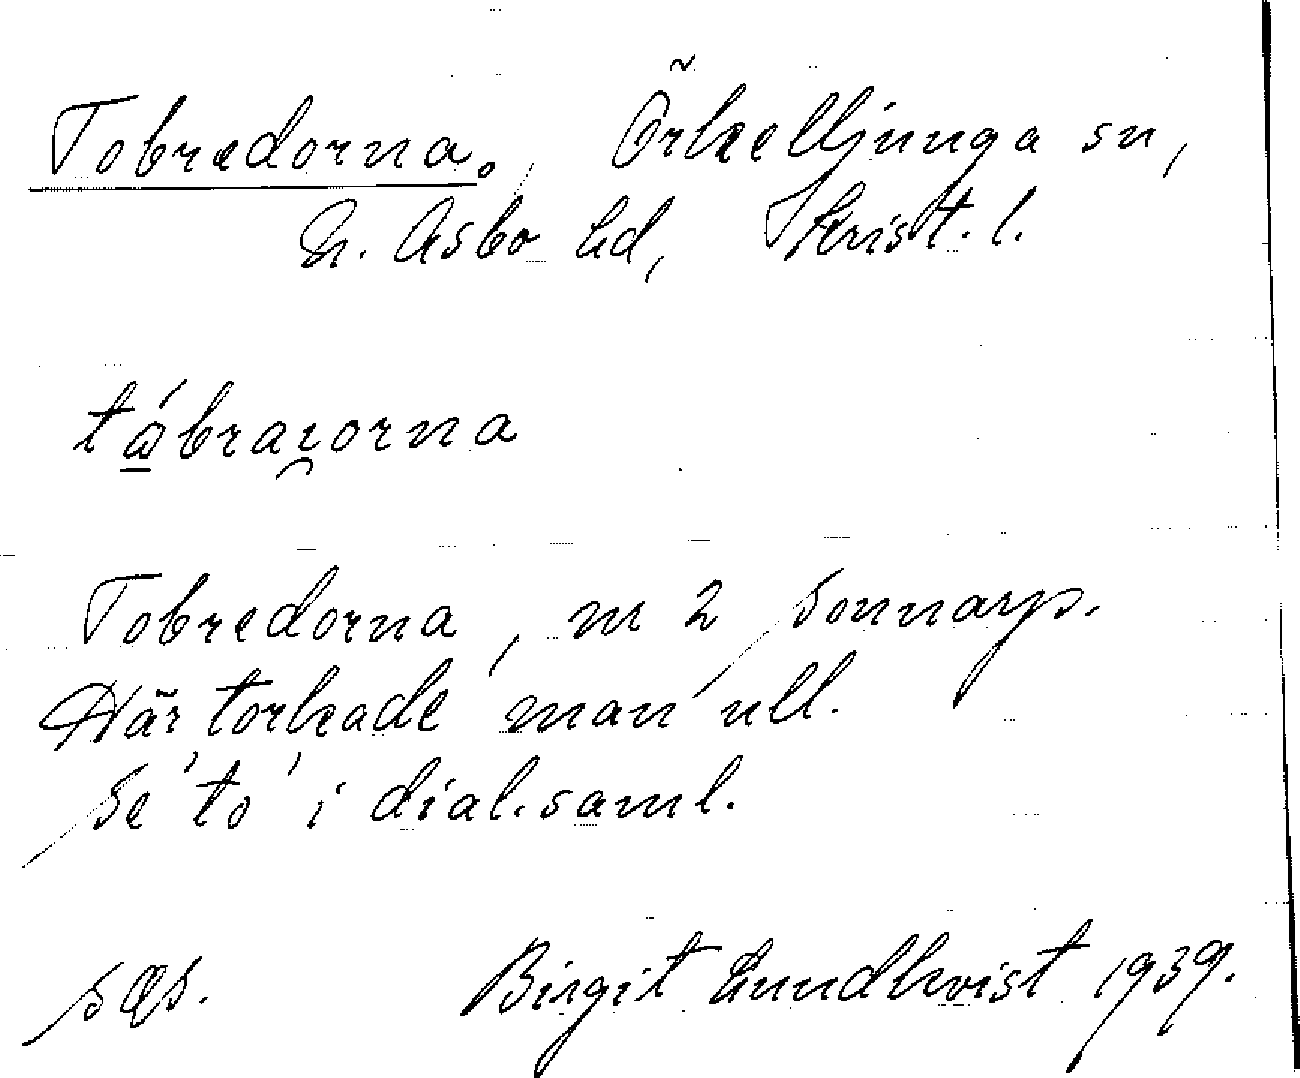 Tobredorna. Örkelljunga sn,
N. Åsbo hd, Krist. l.
tåbraiorna
Tobredorna, m 2 Sonnarp.
Här torkade man ull.
Se 'to' i dial.saml.
Birgit Lundkvist 1939.